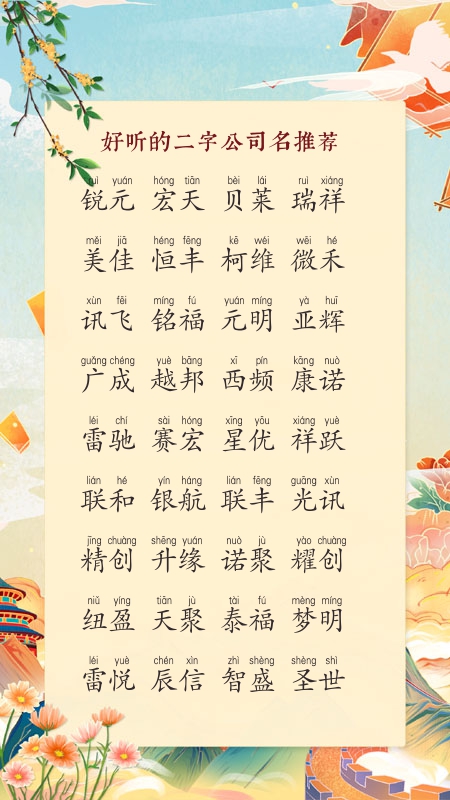 好听的二字公司名推荐
ruì yuán hóng tiān bèi lái ruì xiáng
锐元 宏天 贝莱 瑞祥
měi jiā héng fēng kē wéi wēi hé
美佳 恒丰 柯维 微禾
xùn fēi míng fú yuán míng yà huī
讯飞 铭福 元明 亚辉
guǎng chéng yuè bāng xī pín kāng nuò
广成 越邦 西频 康诺
léi chí sài hóng xīng yōu xiáng yuè
雷驰 赛宏 星优 祥跃
lián hé yín háng lián fēng guāng xùn
联和 银航 联丰 光讯
jīng chuàng shēng yuán nuò jù yào chuàng
精创 升缘 诺聚 耀创
niǔ yíng tiān jù tài fú mèng míng
纽盈 天聚 泰福 梦明
léi yuè chén xìn zhì shèng shèng shì
雷悦 辰信 智盛 圣世